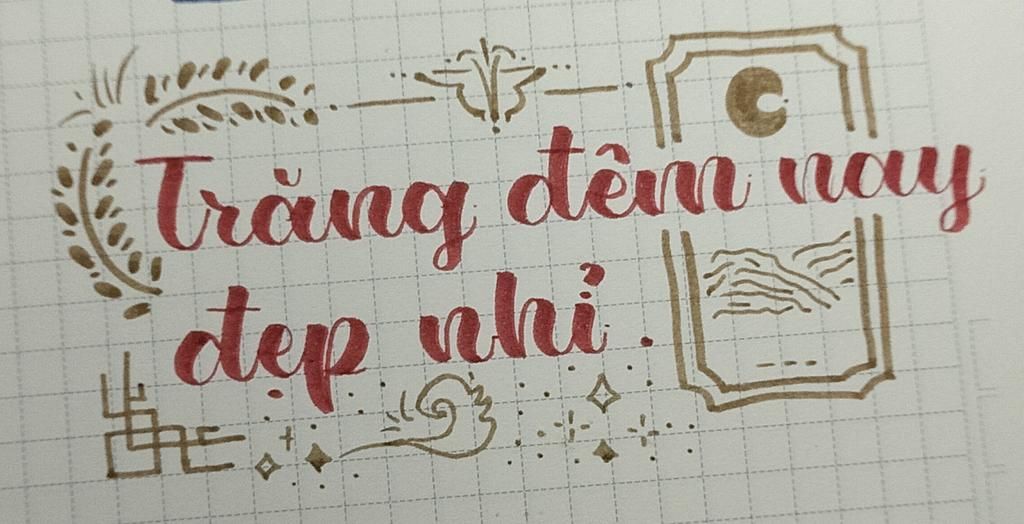 Trăng đêm nay
đẹp nhỉ.